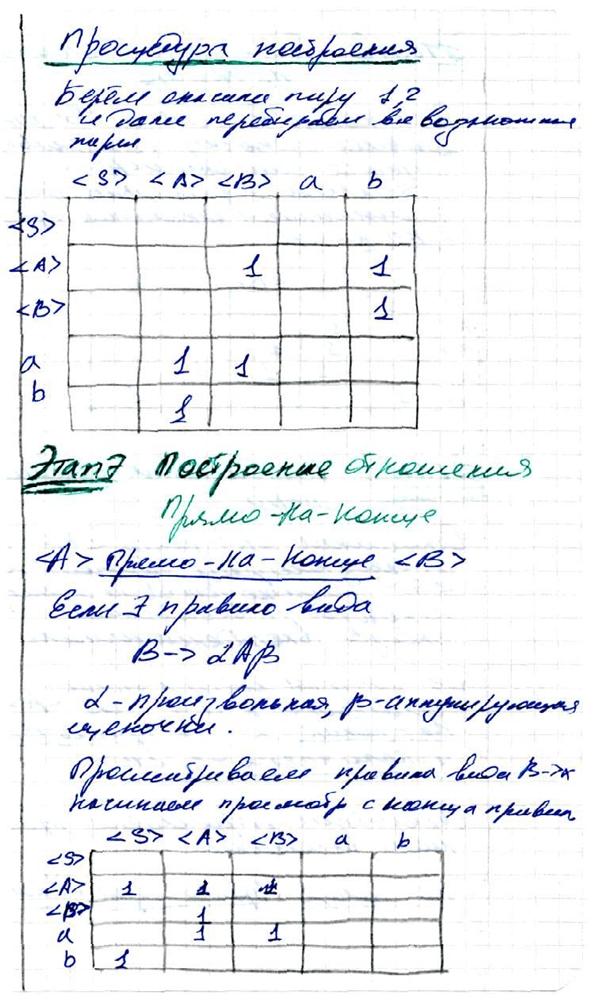 Процедура построения
Берём сначала пару 1,2
и далее перебираем все возможные
пары
<S> <A> <B> a b
<S>
<A> 1 1
<B> 1
a 1 1
b 1
Этап 7 Построение отношения
Прямо-на-конце
<A> Прямо-на-конце <B>
Если ∃ правило вида
B -> αAβ
α - произвольная, β - аннулирующая
цепочки.
Просматриваем правила вида B->x
начинаем просмотр с конца правила
<S> <A> <B> a b
<S>
<A> 1 1 1
<B> 1
a 1 1
b 1